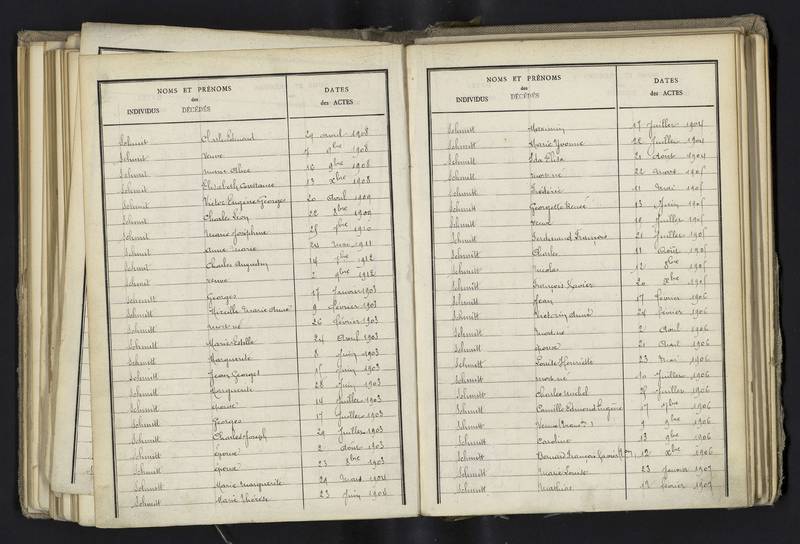 NOMS ET PRÉNOMS
des
INDIVIDUS DÉCÉDÉS
DATES
des ACTES
Schmit Charles Edmond 29 avril 1908
Schmit Veuve 7 9bre 1908
Schmit 16 9bre 1908
Schmit Elisabeth Constance 13 xbre 1908
Schmit Victor Eugène Georges 20 Avril 1909
Schmit Charles Léon 22 8bre 1909
Schmit Marie Joséphine 1910
Schmit Anne Marie 24 Mai 1911
Schmit Charles Augustin 14 1912
Schmit Veuve 2 9bre 1912
Schmitt Georges 17 Janvier 1903
Schmitt Mireille Marie Anne 9 février 1903
Schmitt mort né 26 février 1903
Schmitt Marie Estelle 24 Avril 1903
Schmitt Marguerite 8 Juin 1903
Schmitt Jean Georges 15 Juin 1903
Schmitt Marguerite 28 Juin 1903
Schmitt épouse 14 Juillet 1903
Schmitt Georges 17 Juillet 1903
Schmitt Charles Joseph 29 Juillet 1903
Schmitt épouse 2 août 1903
Schmitt épouse 23 8bre 1903
Schmitt Marie Marguerite 29 Mars 1904
Schmitt Marie Thérèse 23 Juin 1904
NOMS ET PRÉNOMS
des
INDIVIDUS DÉCÉDÉS
DATES
des ACTES
Schmitt 17 Juillet 1904
Schmitt Marie Yvonne 22 Juillet 1904
Schmitt Ida Elisa 21 Août 1904
Schmitt mort né 22 Mars 1905
Schmitt Frédéric 11 Mai 1905
Schmitt Georgette Renée 13 Juin 1905
Schmitt Veuve 18 Juillet 1905
Schmitt Ferdinand François 21 Juillet 1905
Schmitt Charles 11 Août 1905
Schmitt Nicolas 12 8bre 1905
Schmitt François Xavier 20 xbre 1905
Schmitt Jean 17 février 1906
Schmitt Victorine Anne 24 février 1906
Schmitt mort né 2 Avril 1906
Schmitt épouse 21 Avril 1906
Schmitt Louise Henriette 23 Mai 1906
Schmitt mort né 10 Juillet 1906
Schmitt Charles Michel 25 Juillet 1906
Schmitt Camille Edmond Eugène 17 1906
Schmitt 9 9bre 1906
Schmitt Caroline 13 9bre 1906
Schmitt Bernard François Xavier 12 xbre 1906
Schmitt Marie Louise 23 Janvier 1907
Schmitt Mathias 12 février 1907